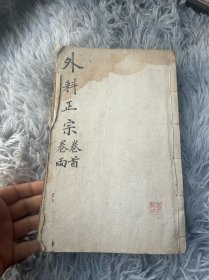 外科正宗
卷首
卷兩